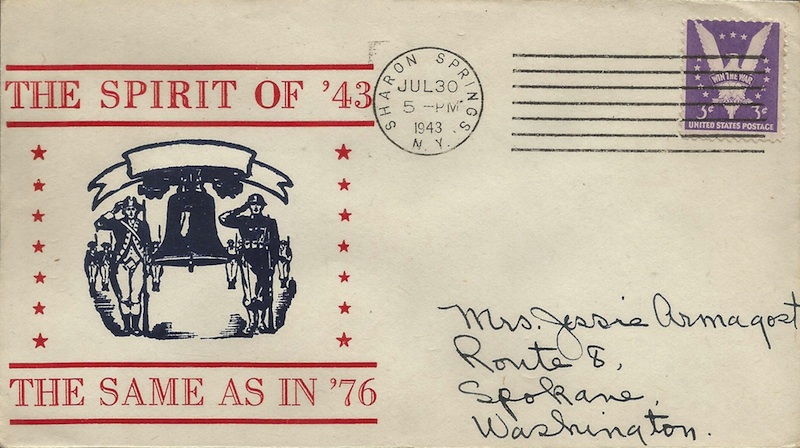 THE SPIRIT OF '43
SHARON SPRINGS
JUL 30
5 - PM
1943
N. Y.
WIN THE WAR
3¢ 3¢
UNITED STATES POSTAGE
THE SAME AS IN '76
Mrs. Jessie Armagost
Route 8,
Spokane,
Washington.